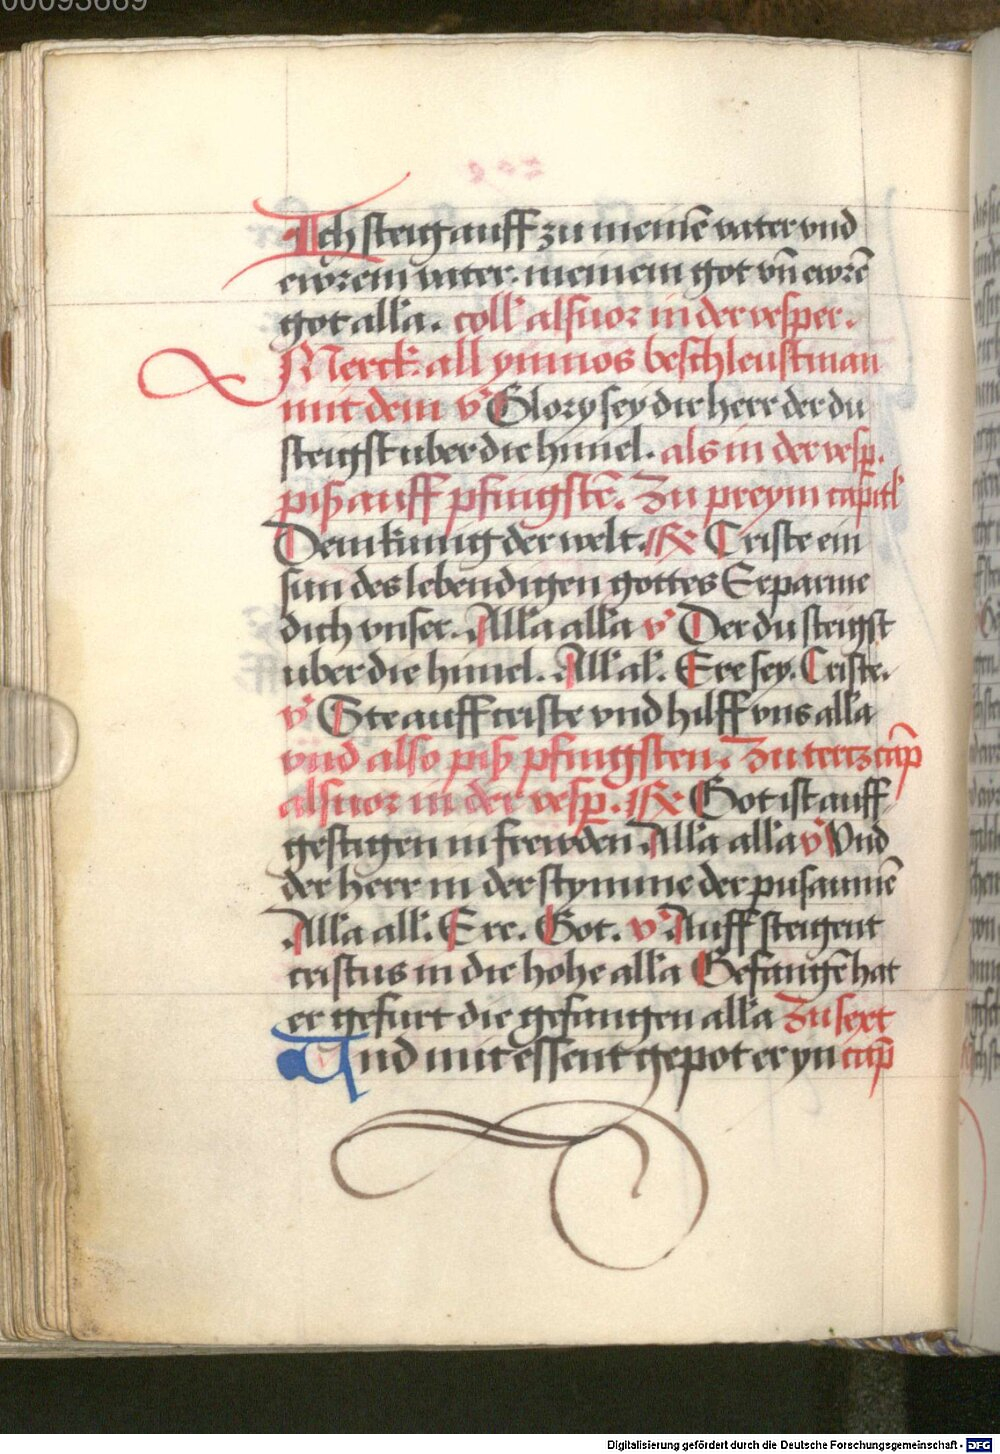 00093669
Ich steig auff zu meinē vater vnd
ewrem vater. meinem got vn̄ ewrē
got all'a. coll' als uor in der vesper.
Merck all ymnos beschleust man
mit dem v' Glory sey dir herr der du
steigst uber die himel. als in der vesp̄.
piß auff pfingstē. Zu preym capitl'
Dem kunig der welt. R̄ Criste ein
sun des lebendigen gottes Erparme
dich vnser. All'a all'a v' Der du steigst
uber die himel. All' al'. Ere sey. Criste.
v' Ste auff criste vnd hilff vns all'a
vnd also piß pfingsten. Zu tertz cap̄
als uor in der vesp̄. R̄ Got ist auff
gestigen in frewden All'a all'a v' Vnd
der herr in der stymme der pusaunnē
All'a all'. Ere. Got. v' Auff steigent
cristus in die hohe all'a Gefangē hat
er gefurt die gefangen all'a Zu sext
Und mit essent gepot er yn cap̄
Digitalisierung gefördert durch die Deutsche Forschungsgemeinschaft - DFG